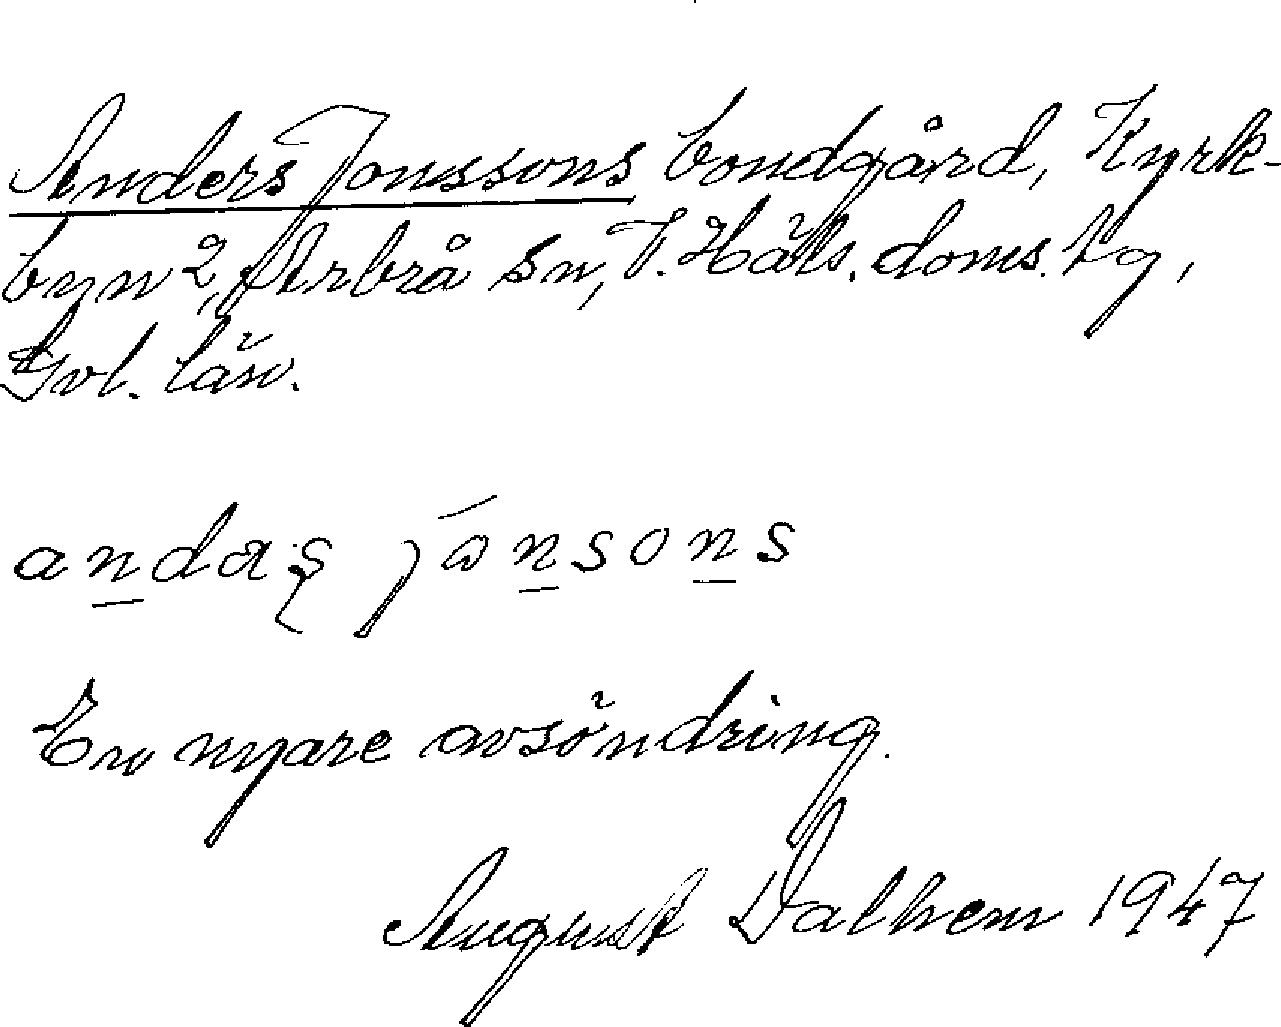 Anders Jonssons bondgård, Kyrk-
byn 2, Arbrå sn, V. Häls. doms. tg,
Gvl. län.
andaş jónsons
En nyare avsöndring.
August Dalhem 1947